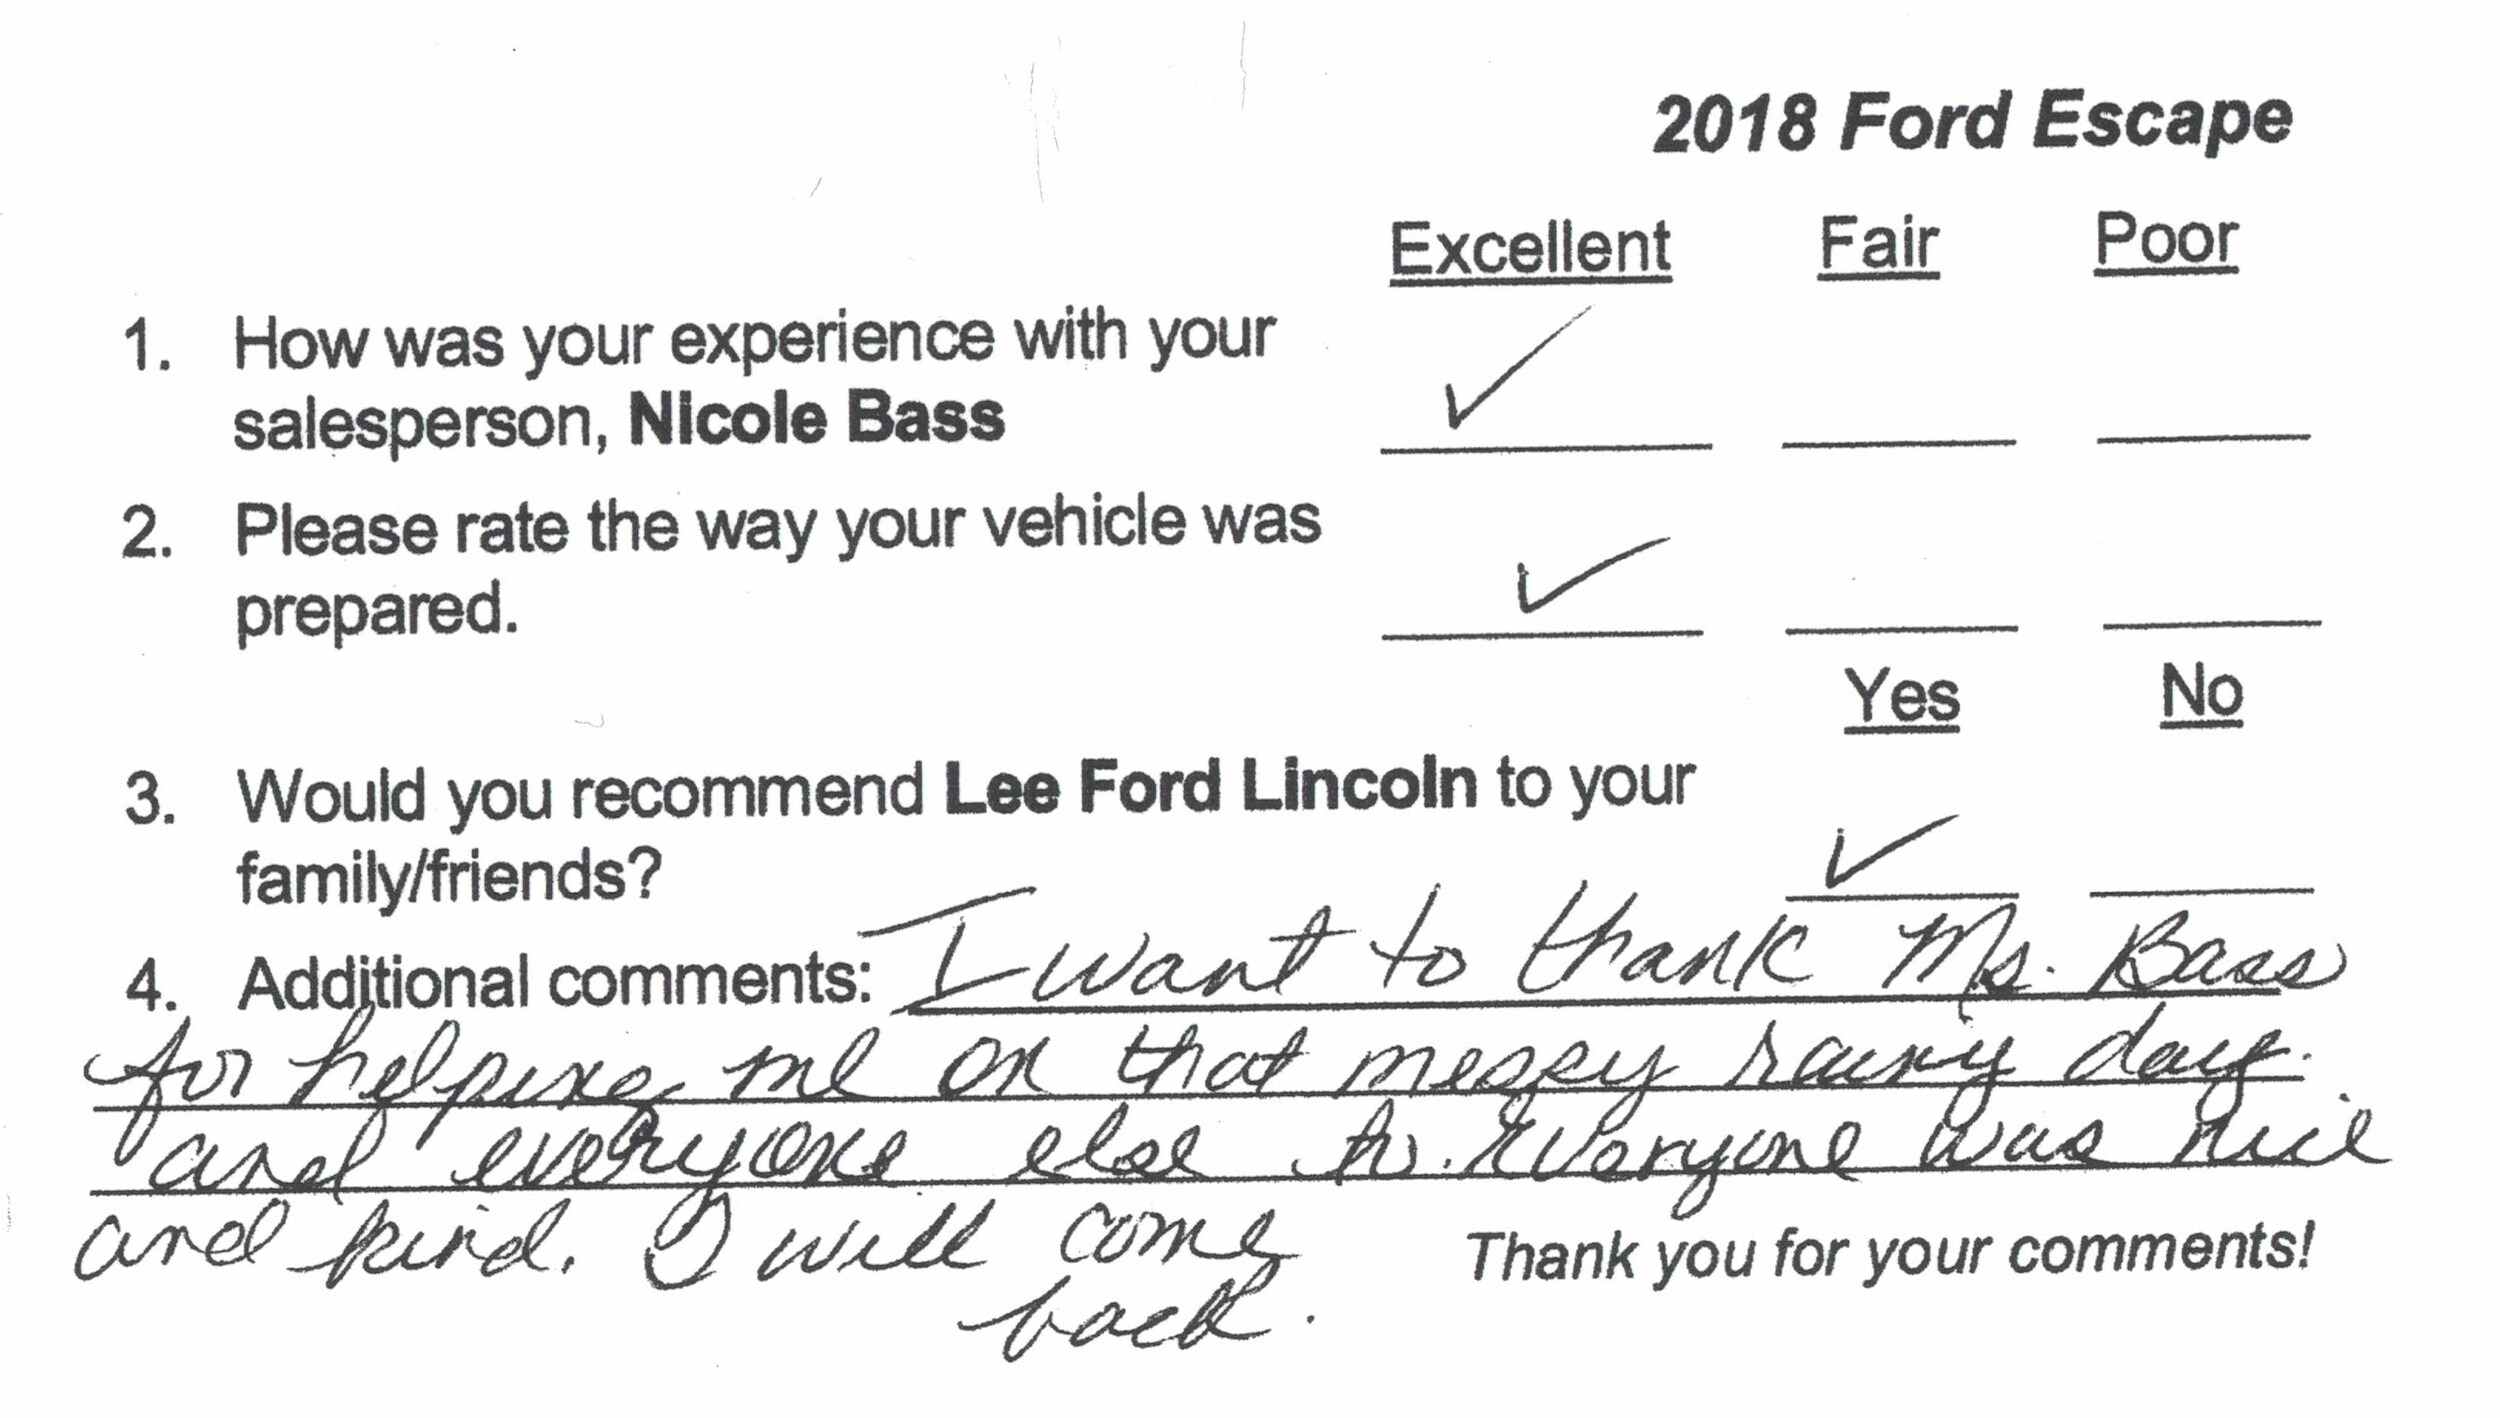 2018 Ford Escape
Excellent Fair Poor
1. How was your experience with your
salesperson, Nicole Bass
2. Please rate the way your vehicle was
prepared.
Yes No
3. Would you recommend Lee Ford Lincoln to your
family/friends?
4. Additional comments: I want to thank Ms. Bass
for helping me on that messy rainy day.
and everyone else Everyone was nice
and kind. I will come
back.
Thank you for your comments!